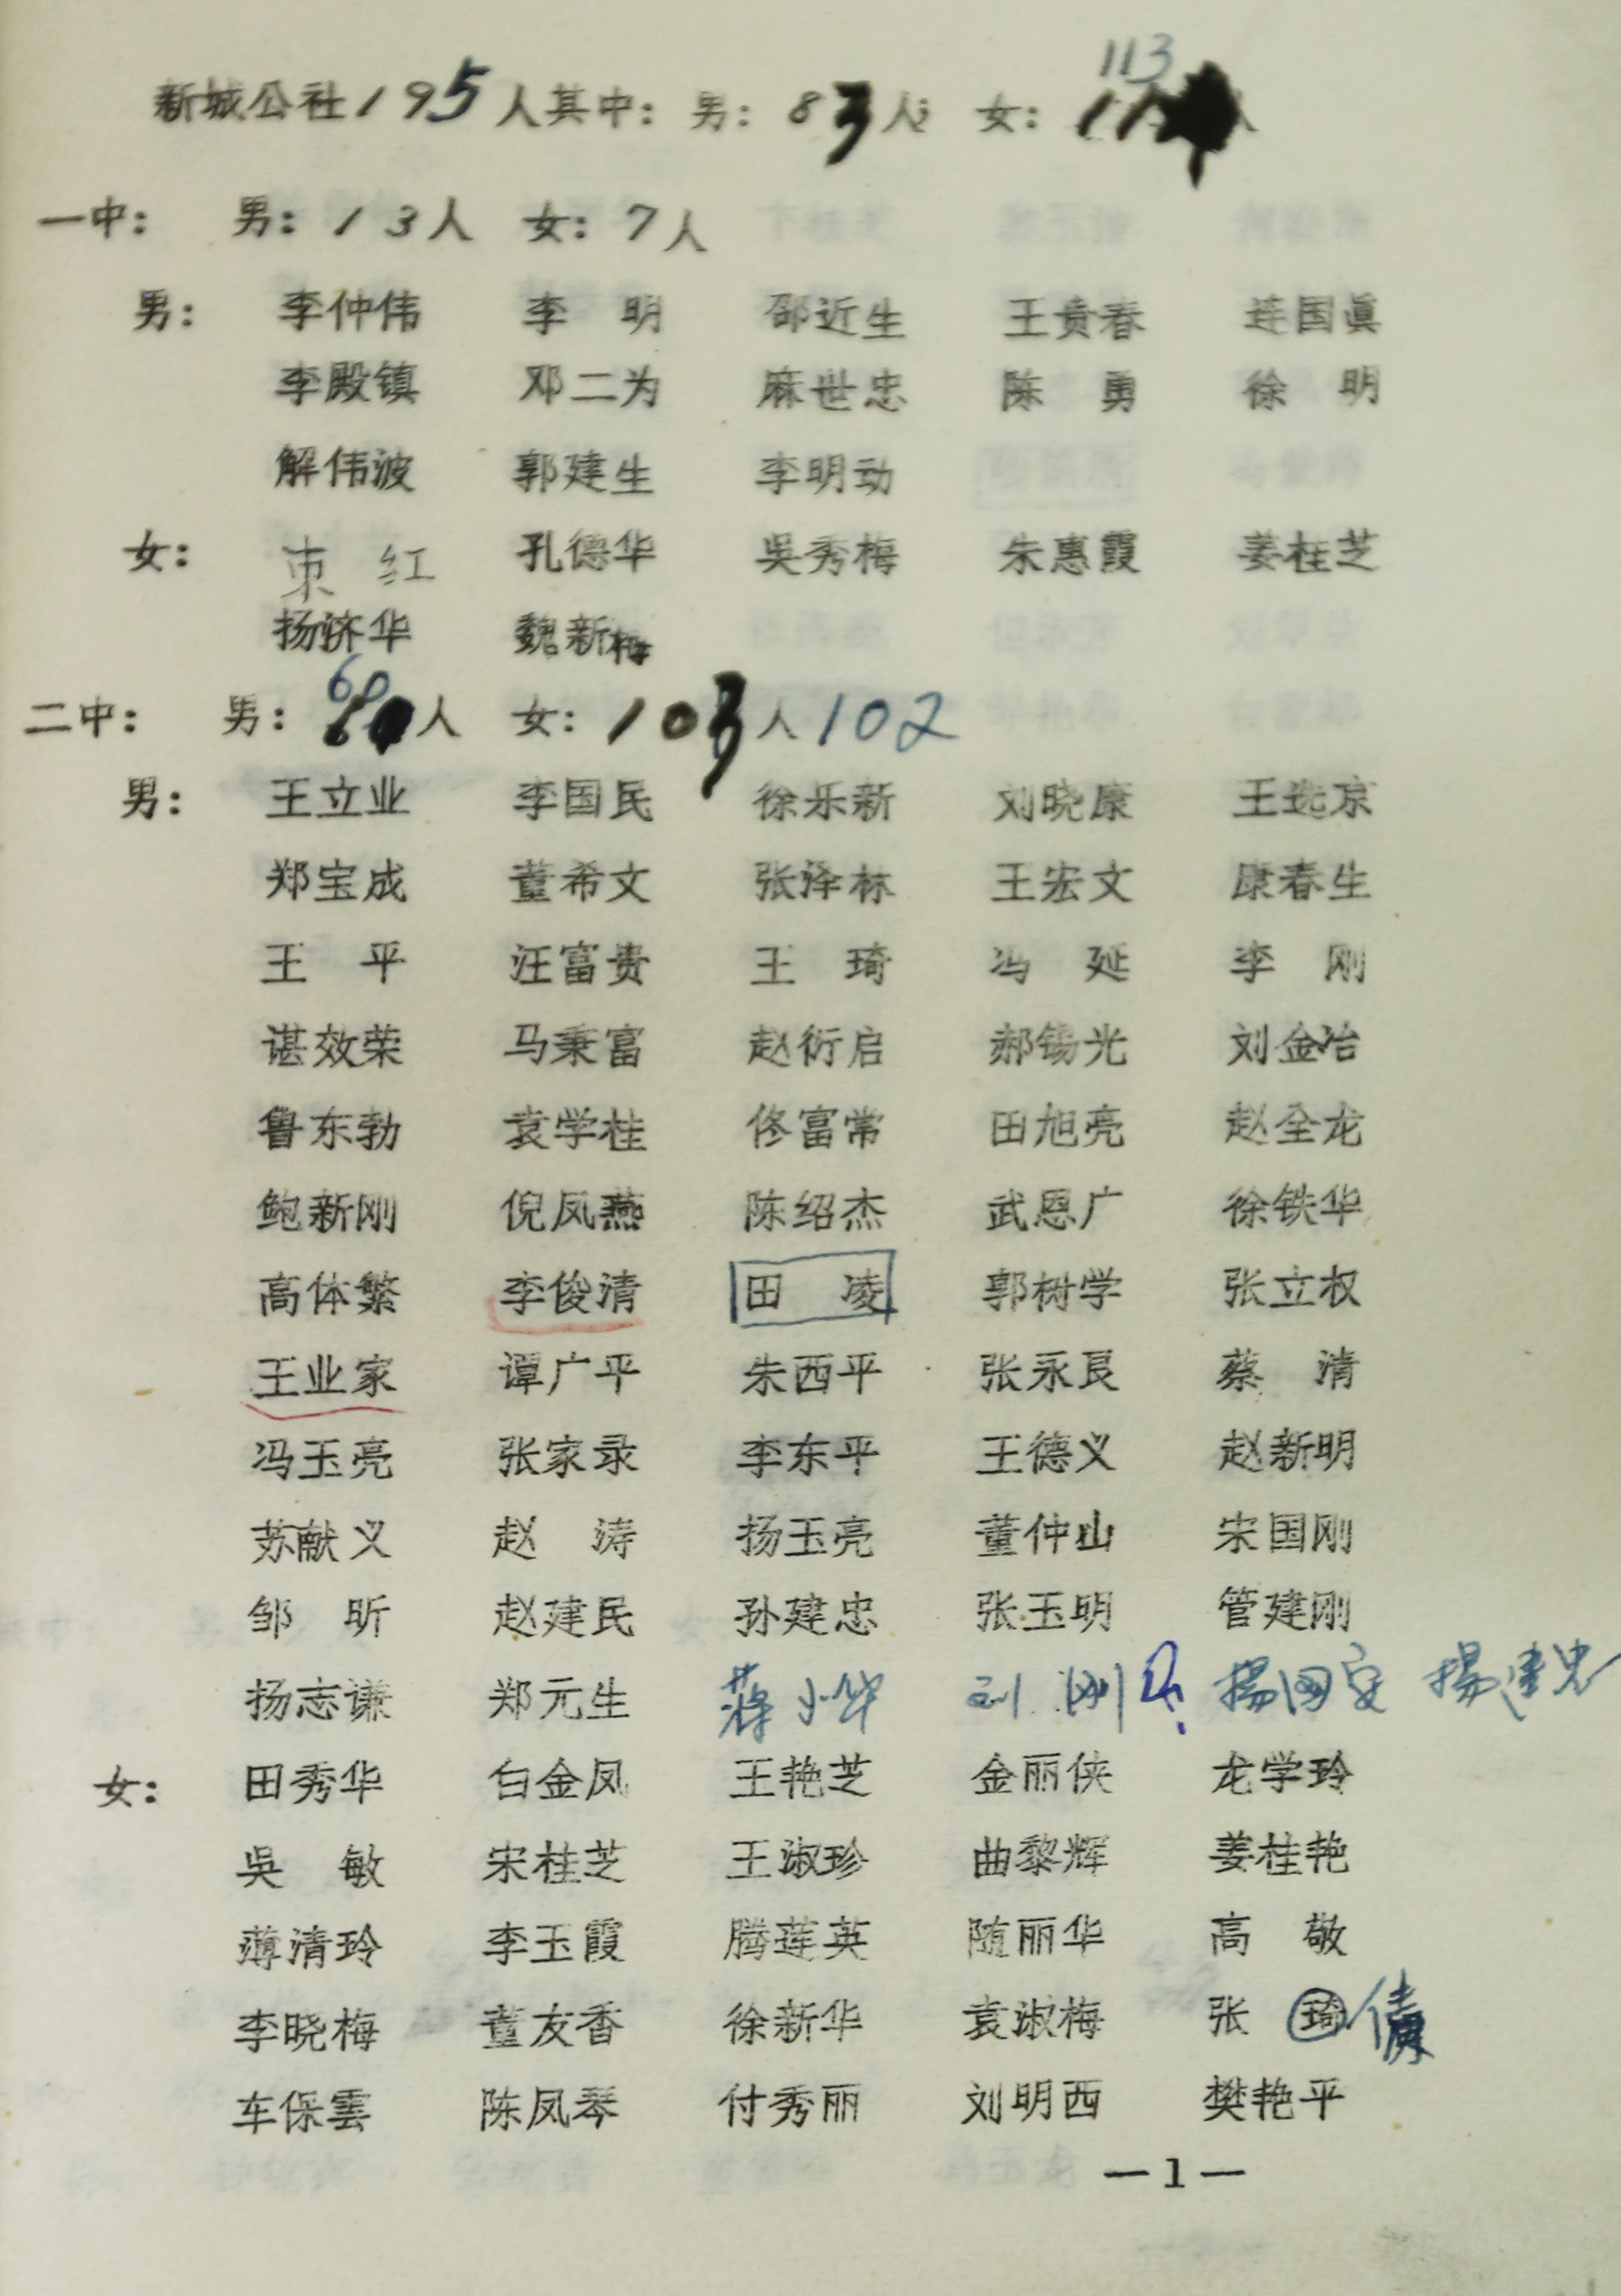 113
新城公社195人其中：男：83人；女：11人
一中：男：13人 女：7人
男：李仲伟 李 明 邵近生 王贵春 连国眞
李殿镇 邓二为 麻世忠 陈 勇 徐 明
解伟波 郭建生 李明动
女：束 红 孔德华 吳秀梅 朱惠霞 姜桂芝
扬济华 魏新梅
60
二中：男：人 女：103人 102
男：王立业 李国民 徐乐新 刘晓康 王选京
郑宝成 董希文 张泽林 王宏文 康春生
王 平 汪富贵 王 琦 冯 延 李 刚
谌效荣 马秉富 赵衍启 郝锡光 刘金冶
鲁东勃 袁学桂 佟富常 田旭亮 赵全龙
鲍新刚 倪凤燕 陈绍杰 武恩广 徐铁华
高体繁 李俊清 田 凌 郭树学 张立权
王业家 谭广平 朱西平 张永良 蔡 清
冯玉亮 张家录 李东平 王德义 赵新明
苏献义 赵 涛 扬玉亮 董仲山 宋国刚
邹 昕 赵建民 孙建忠 张玉明 管建刚
扬志谦 郑元生 蒋小华 刘 刚 揚国安 揚建忠
女：田秀华 白金凤 王艳芝 金丽侠 龙学玲
吳 敏 宋桂芝 王淑珍 曲黎辉 姜桂艳
薄清玲 李玉霞 腾莲英 随丽华 高 敬
李晓梅 董友香 徐新华 袁淑梅 张 琦 倩
车保雲 陈凤琴 付秀丽 刘明西 樊艳平
—1—